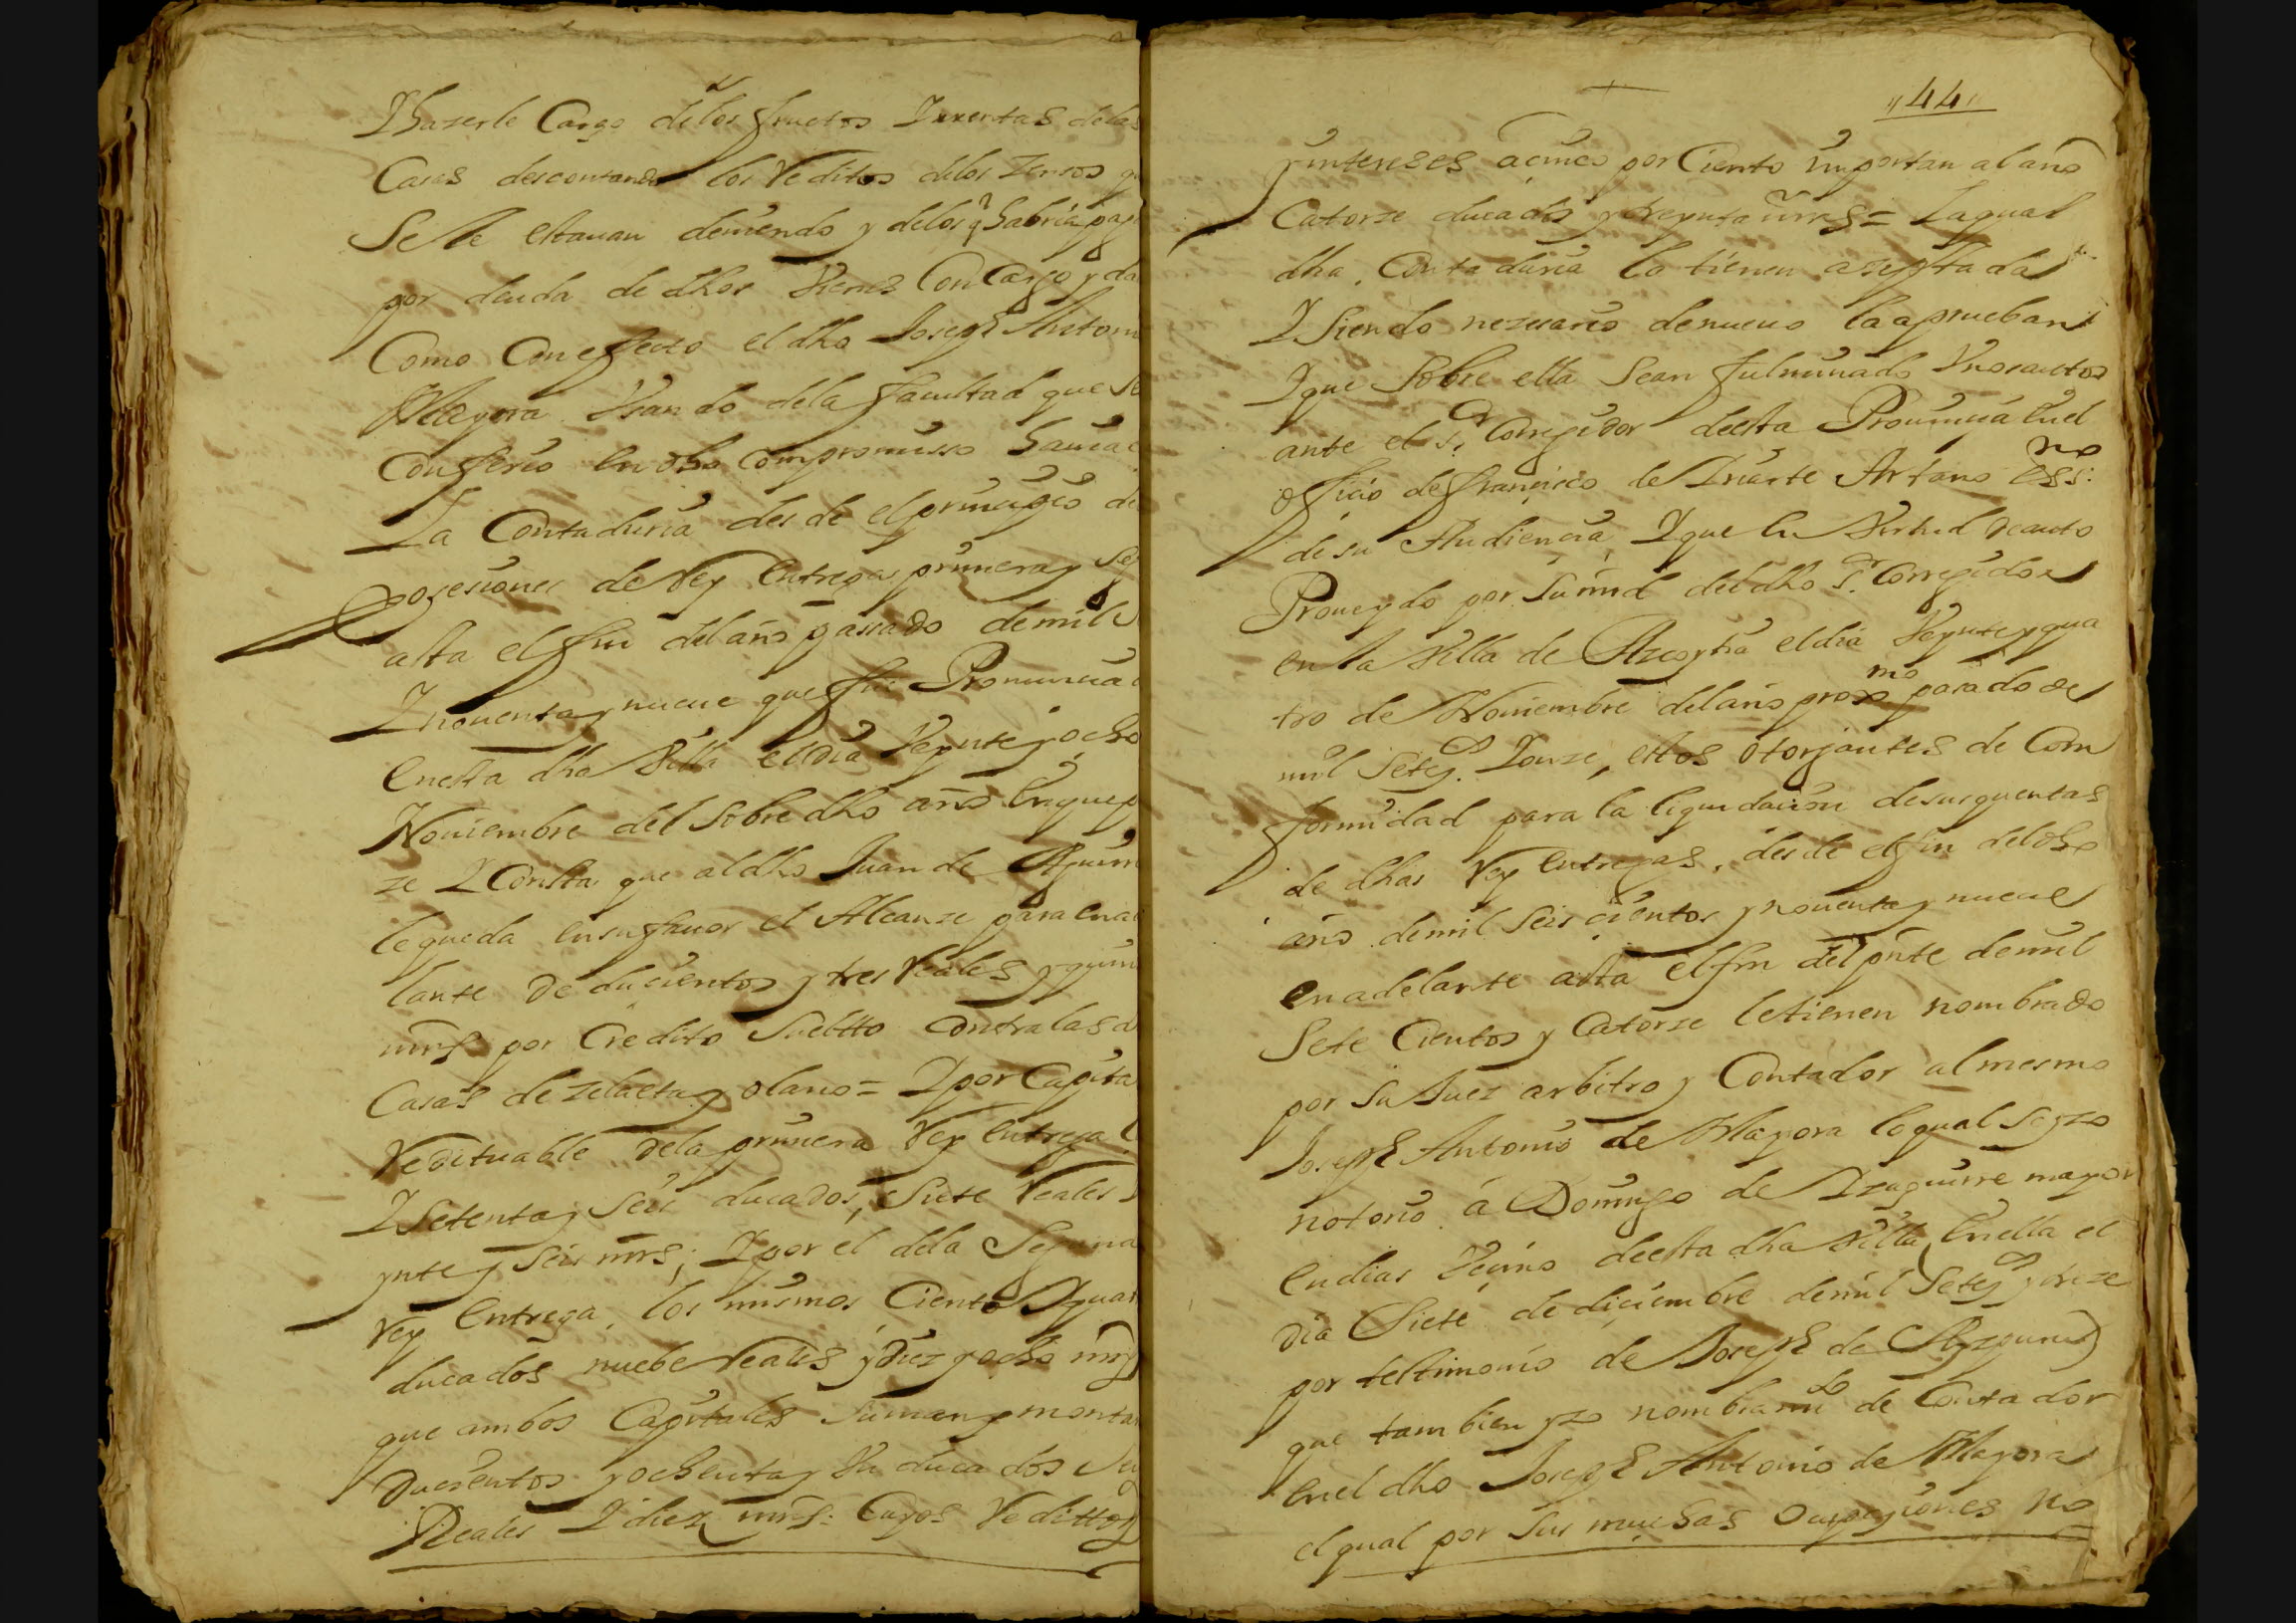 Yhazerle Cargo de los fructos Y rrentas de las
Casas descontando los Reditos delos Zensos q
Se le estauan deuiendo y delos q̃ habria pag
por deuda de dhos Vienes Con Cargo y da
Como Con efecto el dho Joseph Antoni
Mayora Vsando dela facultad que se
Confirio en dho Compromisso hauia
La Contaduria desde el prinçipio de
posesiones de Rey Entregas primera y Seg
asta el fin del año passado de mil
Y nouenta y nueue que fue Pronunciada
En esta dha Villa el dia Veynte y ocho
Nouiembre del Sobre dho año En que p
ze Y Consta que al dho Juan de
le queda en su fauor el Alcanze para en a
lante de ducientos y tres Reales y quin
mrs por Credito Suelto contra las d
Casas de zelaeta y olano = Y por Capita
Redituable dela primera Rey Entrega
Y Setenta y Seis ducados, Siete Reales
ynte y Seis mrs; Y por el dela Segunda
Rey Entrega, los mismos Ciento Y quat
ducados nuebe Reales y diez y ocho mrs
que ambos Capitales Suman y montan
Ducientos y ochenta y Vn ducados
Reales Y diez mrs: Cuyos Redittos
"44"
y intereses a çinco por Ciento importan al año
Catorze ducados y treynta mrs = La qual
dha Contaduria la tienen aseptada
Y Siendo nezesario de nueuo la aprueban
Y que Sobre ella Sean fulminado Vnos autos
ante el Sr. Corregidor de esta Prouinçia En el
ofiçio de françisco de Yriarte Artano essno:
de su Audiençia, Y que en Virtud de auto
Proueydo por Su md del dho Sr. Corregidor
en la Villa de Azcoytia el dia Veynte y qua
tro de Nouiembre del año proxmo pasado de
mil Seteçs. Y onze, estos otorgantes de Com
formidad para la liquidaçion de sus quentas
de dhas Rey Entregas, desde el fin del dho
año de mil Seis çientos y nouenta y nueue
en adelante asta el fin del pnte de mil
Sete Cientos y Catorze le tienen nombrado
por Su Juez arbitro y Contador al mesmo
Joseph Antonio de Mayora lo qual Se yzo
notorio á Domingo de Yzaguirre mayor
en dias Veçino de esta dha Villa, En ella el
dia Siete de diçiembre de mil Seteçs y treze
por testimonio de Joseph de Azpiru
que tambien yzo nombramto de Contador
en el dho Joseph Antonio de Mayora
el qual por Sus muchas Ocupaçiones no